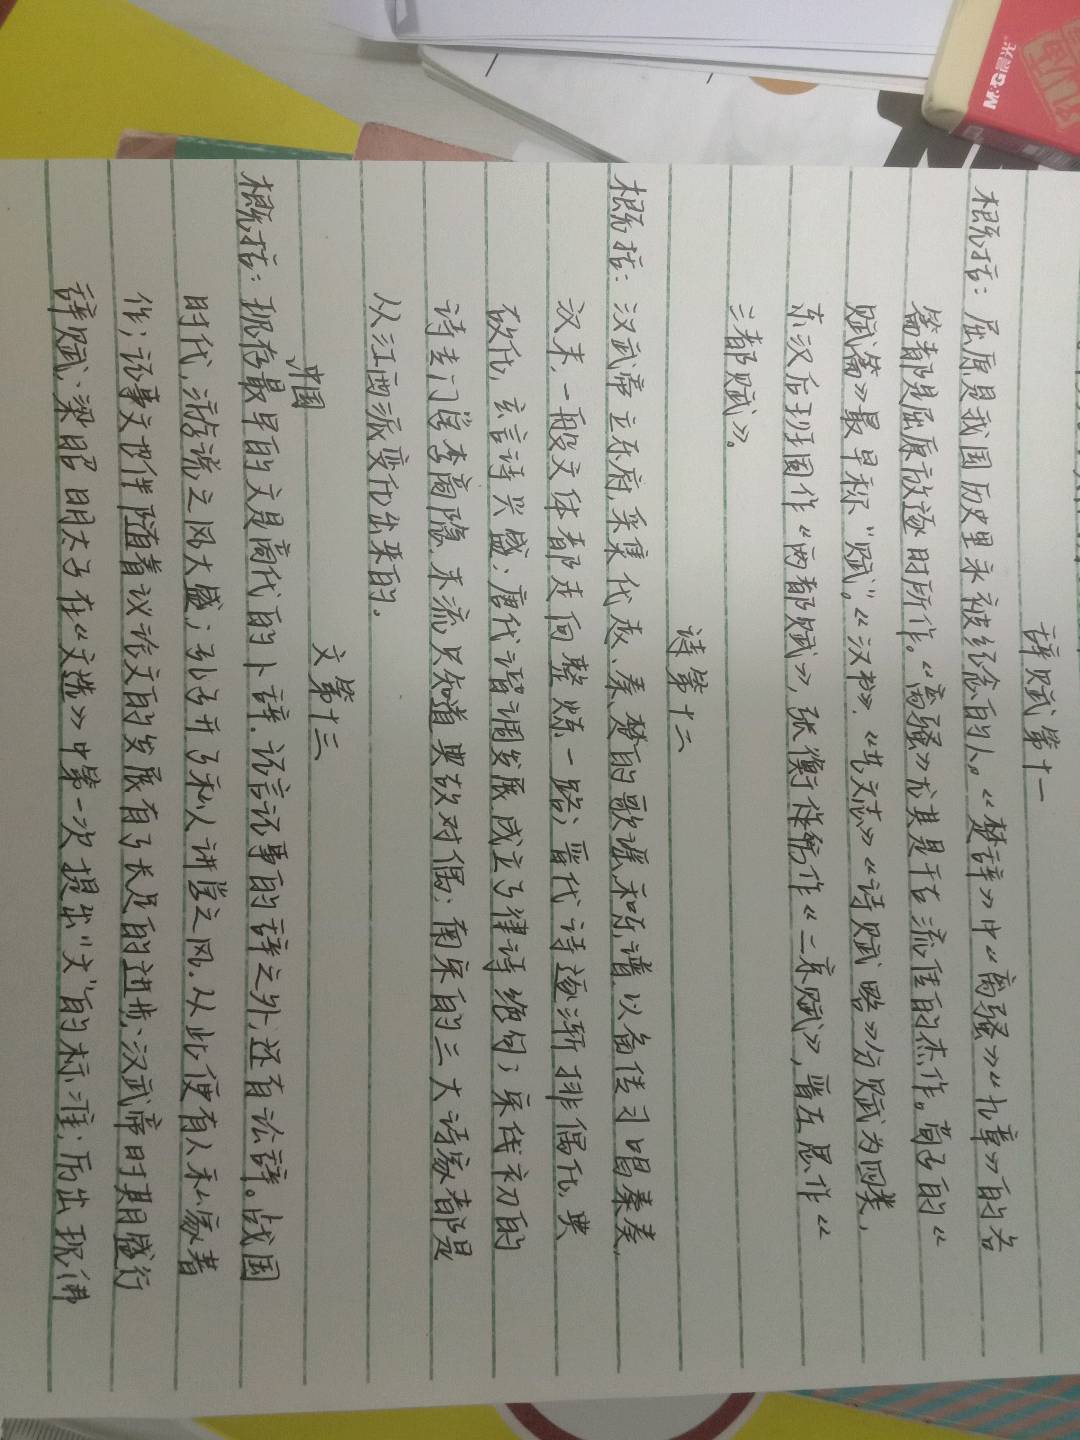 辞赋第十一
概括：屈原是我国历史里永被纪念的人。《楚辞》中《离骚》《九章》的各
篇都是屈原放逐时所作。《离骚》尤其是千古流传的杰作。荀子的《
赋篇》最早称“赋”。《汉书》.《艺文志》《诗赋略》分赋为四类，
东汉后班固作《两都赋》，张衡作《二京赋》，晋左思作《
三都赋》。
诗第十二
概括：汉武帝立乐府，采集代、赵、秦、楚的歌谣和乐谱，以备传习唱奏，
汉末，一般文体都走向整炼一路；晋代诗逐渐排偶化、典
故化，玄言诗兴盛；唐代谐调发展，成立了律诗绝句；宋代初的
诗专门学李商隐，末流只知道典故对偶；南宋的三大诗家都是
从江西派变化出来的.
文第十三
概括：现存最早的文是商代的卜辞.记言记事的辞之外，还有讼辞。战国
时代，游说之风大盛；孔子开了私人讲学之风.从此便有人私家著
作；记事文也伴随着议论文的发展有了长足的进步；汉武帝时期盛行
辞赋；梁昭明太子在《文选》中第一次提出“文”的标准；后出现佛
M&G晨光